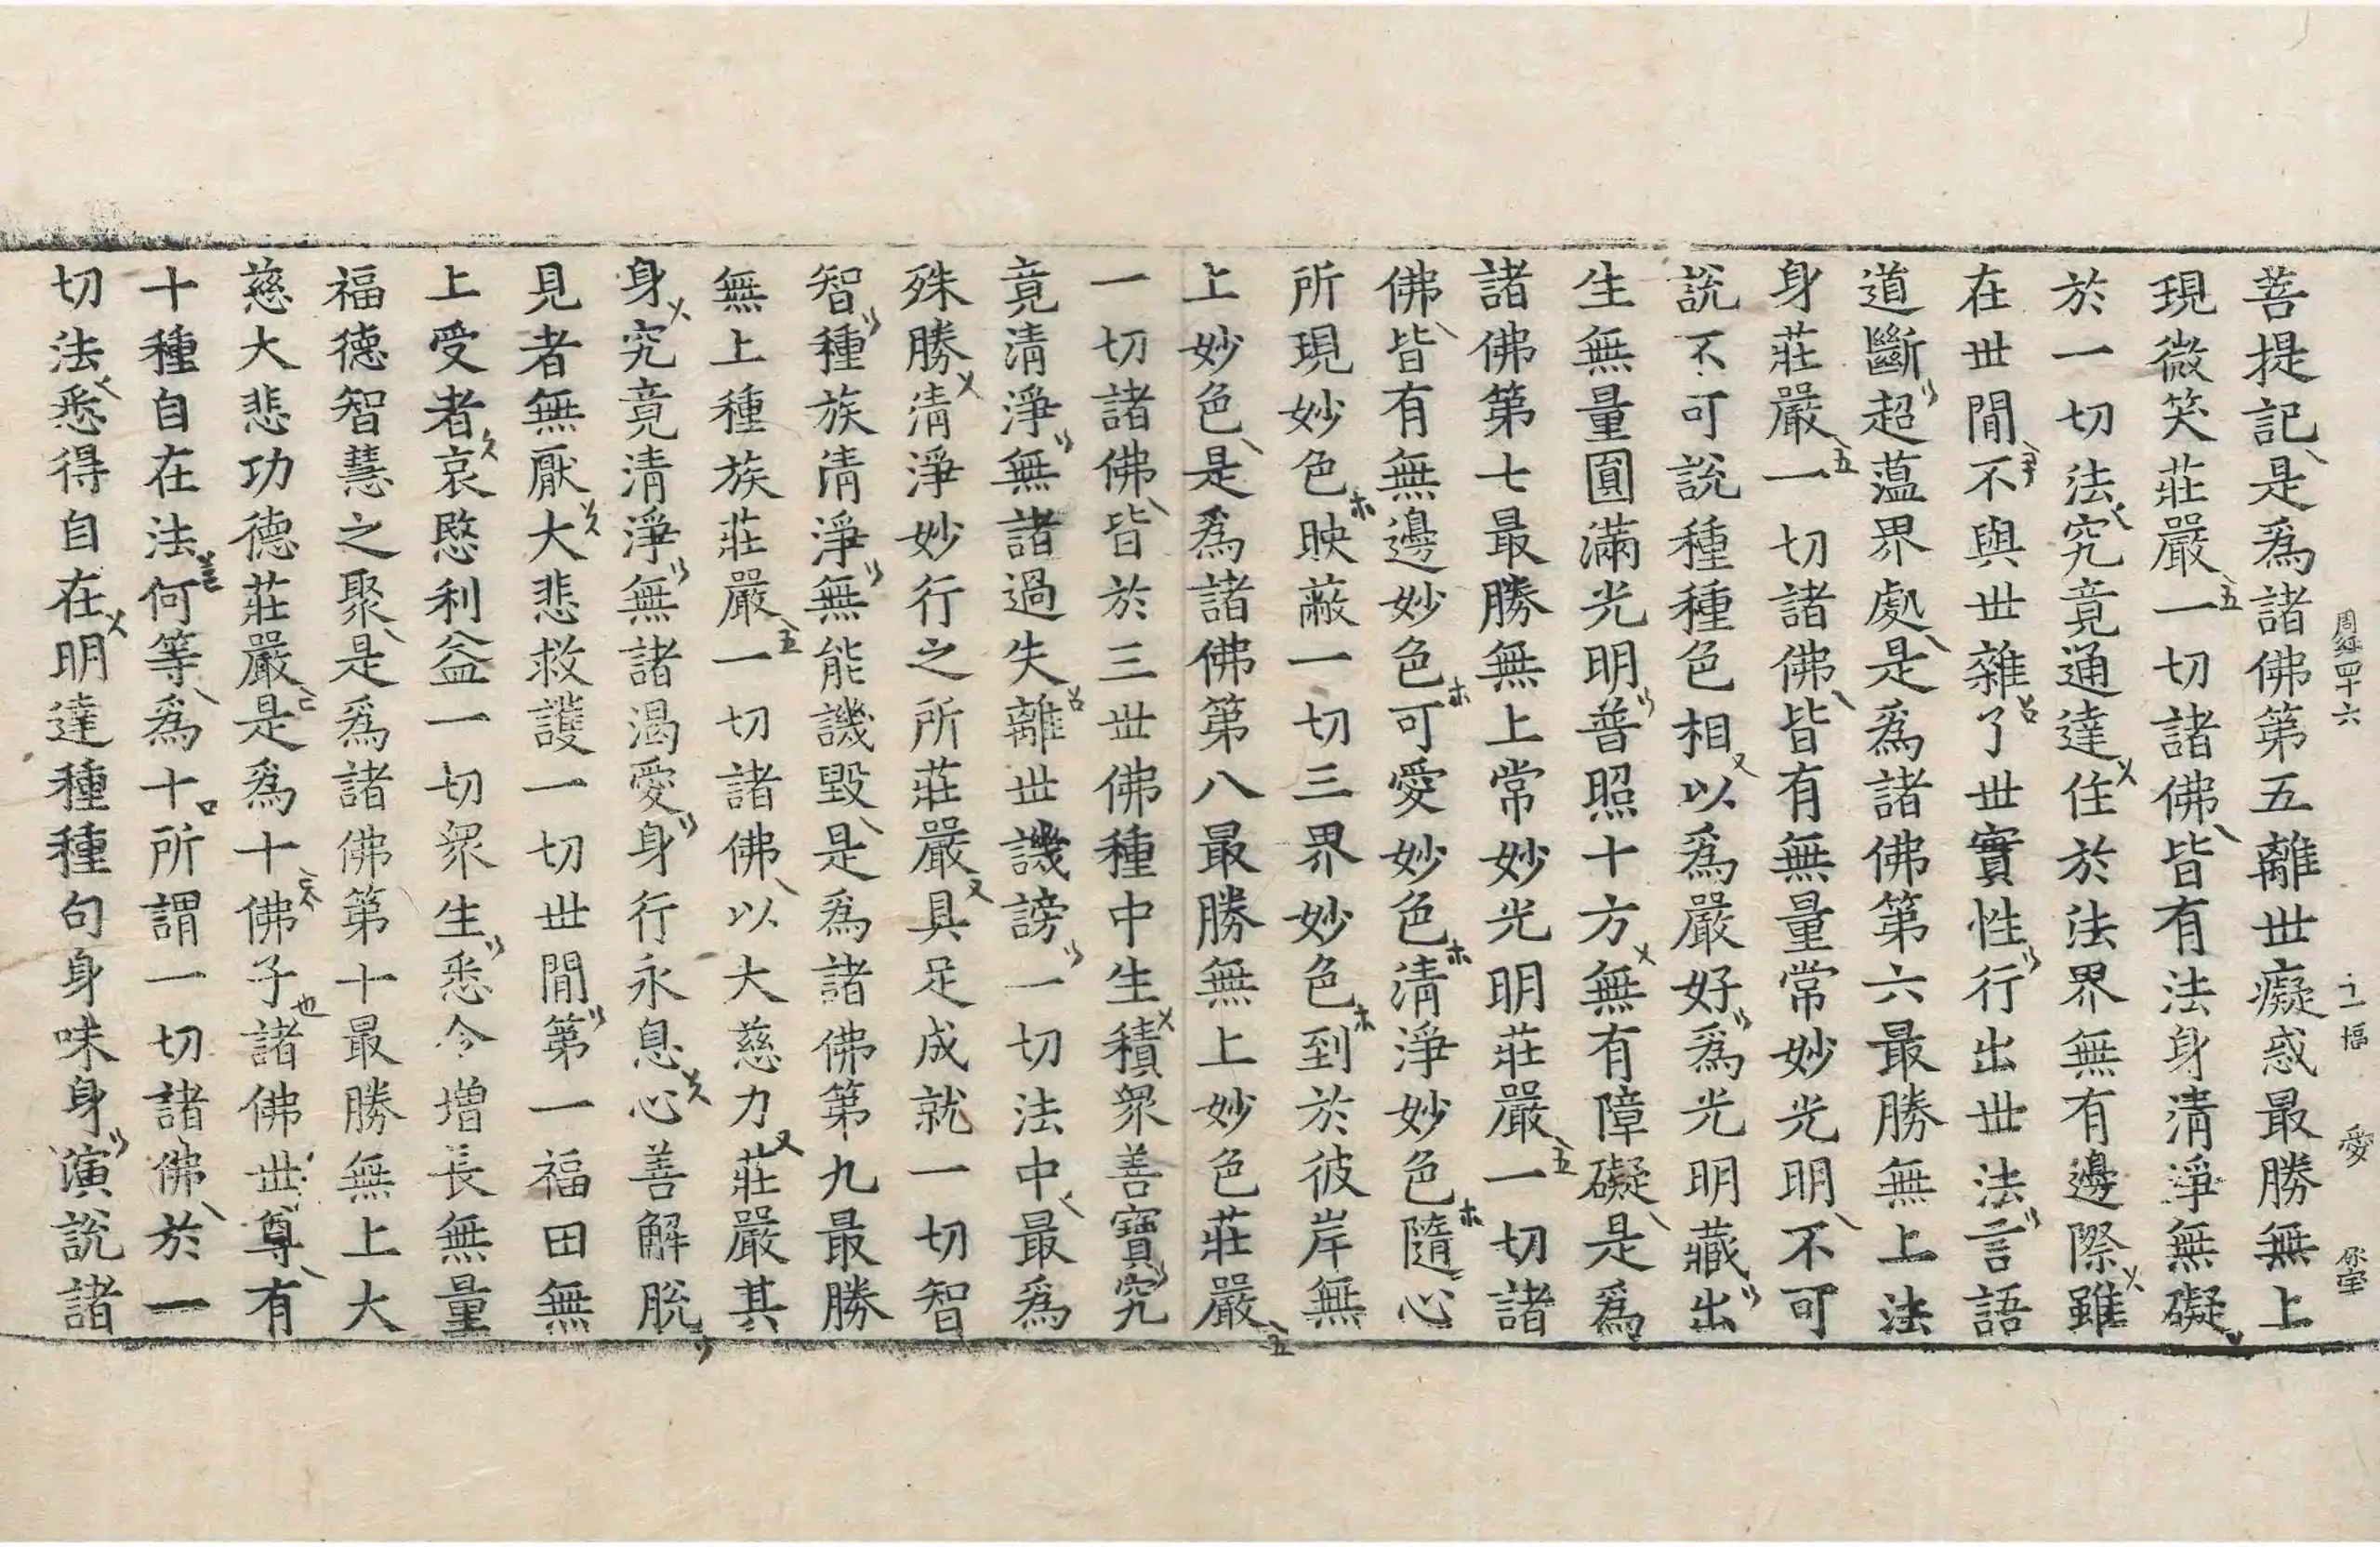 周經四十六 十一幅 愛
菩提記是爲諸佛第五離世癡惑最勝無上
現微笑莊嚴一切諸佛皆有法身清淨無礙
於一切法究竟通達住於法界無有邊際雖
在世間不與世雜了世實性行出世法言語
道斷超蕰界處是爲諸佛第六最勝無上法
身莊嚴一切諸佛皆有無量常妙光明不可
說不可說種種色相以爲嚴好爲光明藏出
生無量圓滿光明普照十方無有障礙是爲
諸佛第七最勝無上常妙光明莊嚴一切諸
佛皆有無邊妙色可愛妙色清淨妙色隨心
所現妙色映蔽一切三界妙色到於彼岸無
上妙色是爲諸佛第八最勝無上妙色莊嚴
一切諸佛皆於三世佛種中生積衆善寶究
竟清淨無諸過失離世譏謗一切法中最爲
殊勝清淨妙行之所莊嚴具足成就一切智
智種族清淨無能譏毀是爲諸佛第九最勝
無上種族莊嚴一切諸佛以大慈力莊嚴其
身究竟清淨無諸渴愛身行永息心善解脫
見者無厭大悲救護一切世間第一福田無
上受者哀愍利益一切衆生悉令增長無量
福德智慧之聚是爲諸佛第十最勝無上大
慈大悲功德莊嚴是爲十佛子諸佛世尊有
十種自在法何等爲十所謂一切諸佛於一
切法悉得自在明達種種句身味身演說諸